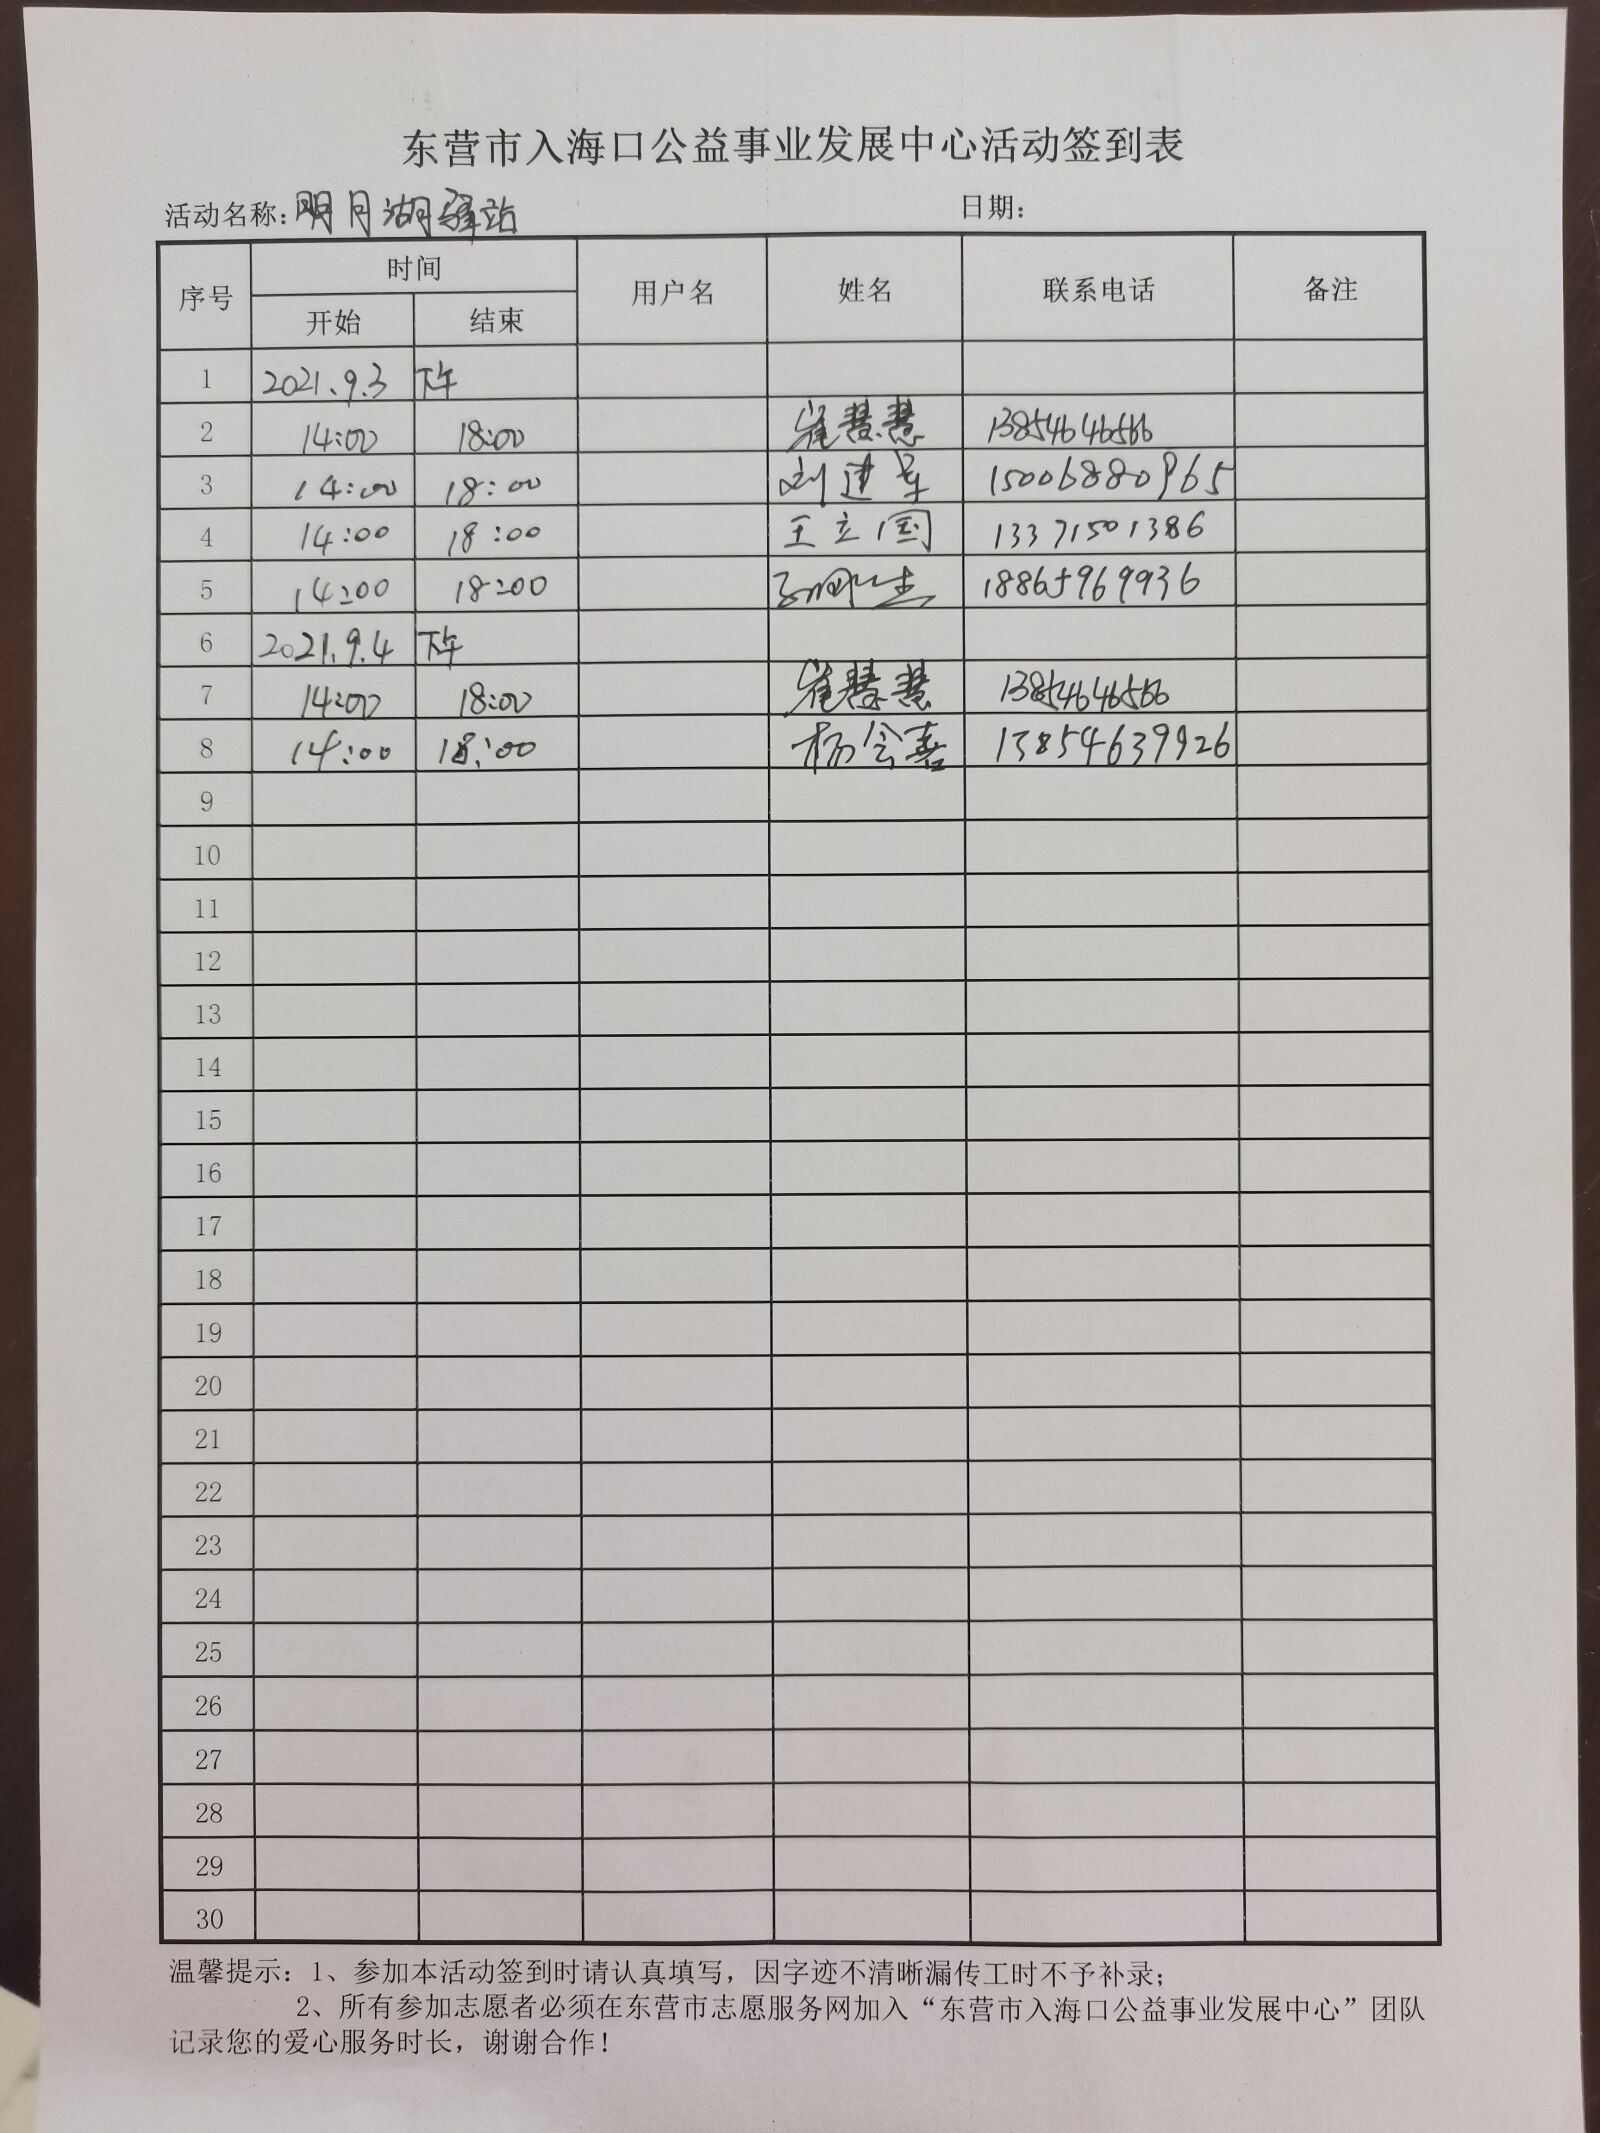 东营市入海口公益事业发展中心活动签到表
活动名称：明月湖驿站 日期：
序号 时间 用户名 姓名 联系电话 备注
开始 结束
1 2021.9.3 下午
2 14:00 18:00 崔慧慧 13854646566
3 14:00 18:00 刘建军 15006880965
4 14:00 18:00 王立国 13371501386
5 14:00 18:00 18865969936
6 2021.9.4 下午
7 14:00 18:00 崔慧慧 13854646566
8 14:00 18:00 杨会喜 13854639926
9
10
11
12
13
14
15
16
17
18
19
20
21
22
23
24
25
26
27
28
29
30
温馨提示：1、参加本活动签到时请认真填写，因字迹不清晰漏传工时不予补录；
2、所有参加志愿者必须在东营市志愿服务网加入“东营市入海口公益事业发展中心”团队
记录您的爱心服务时长，谢谢合作！